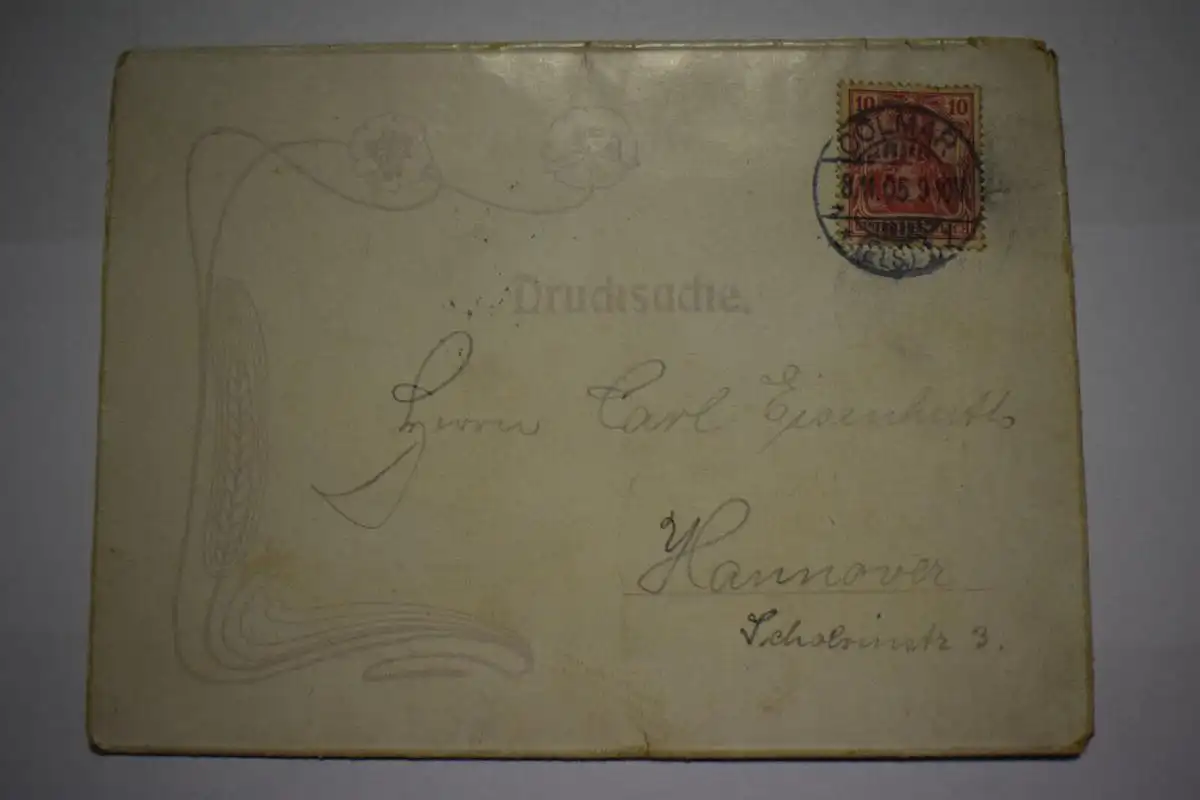 10 10
COLMAR
8.11.05. 9
(ELS.)
Drucksache.
Herrn Carl Eisenhuth
Hannover
Scholvinstr 3.